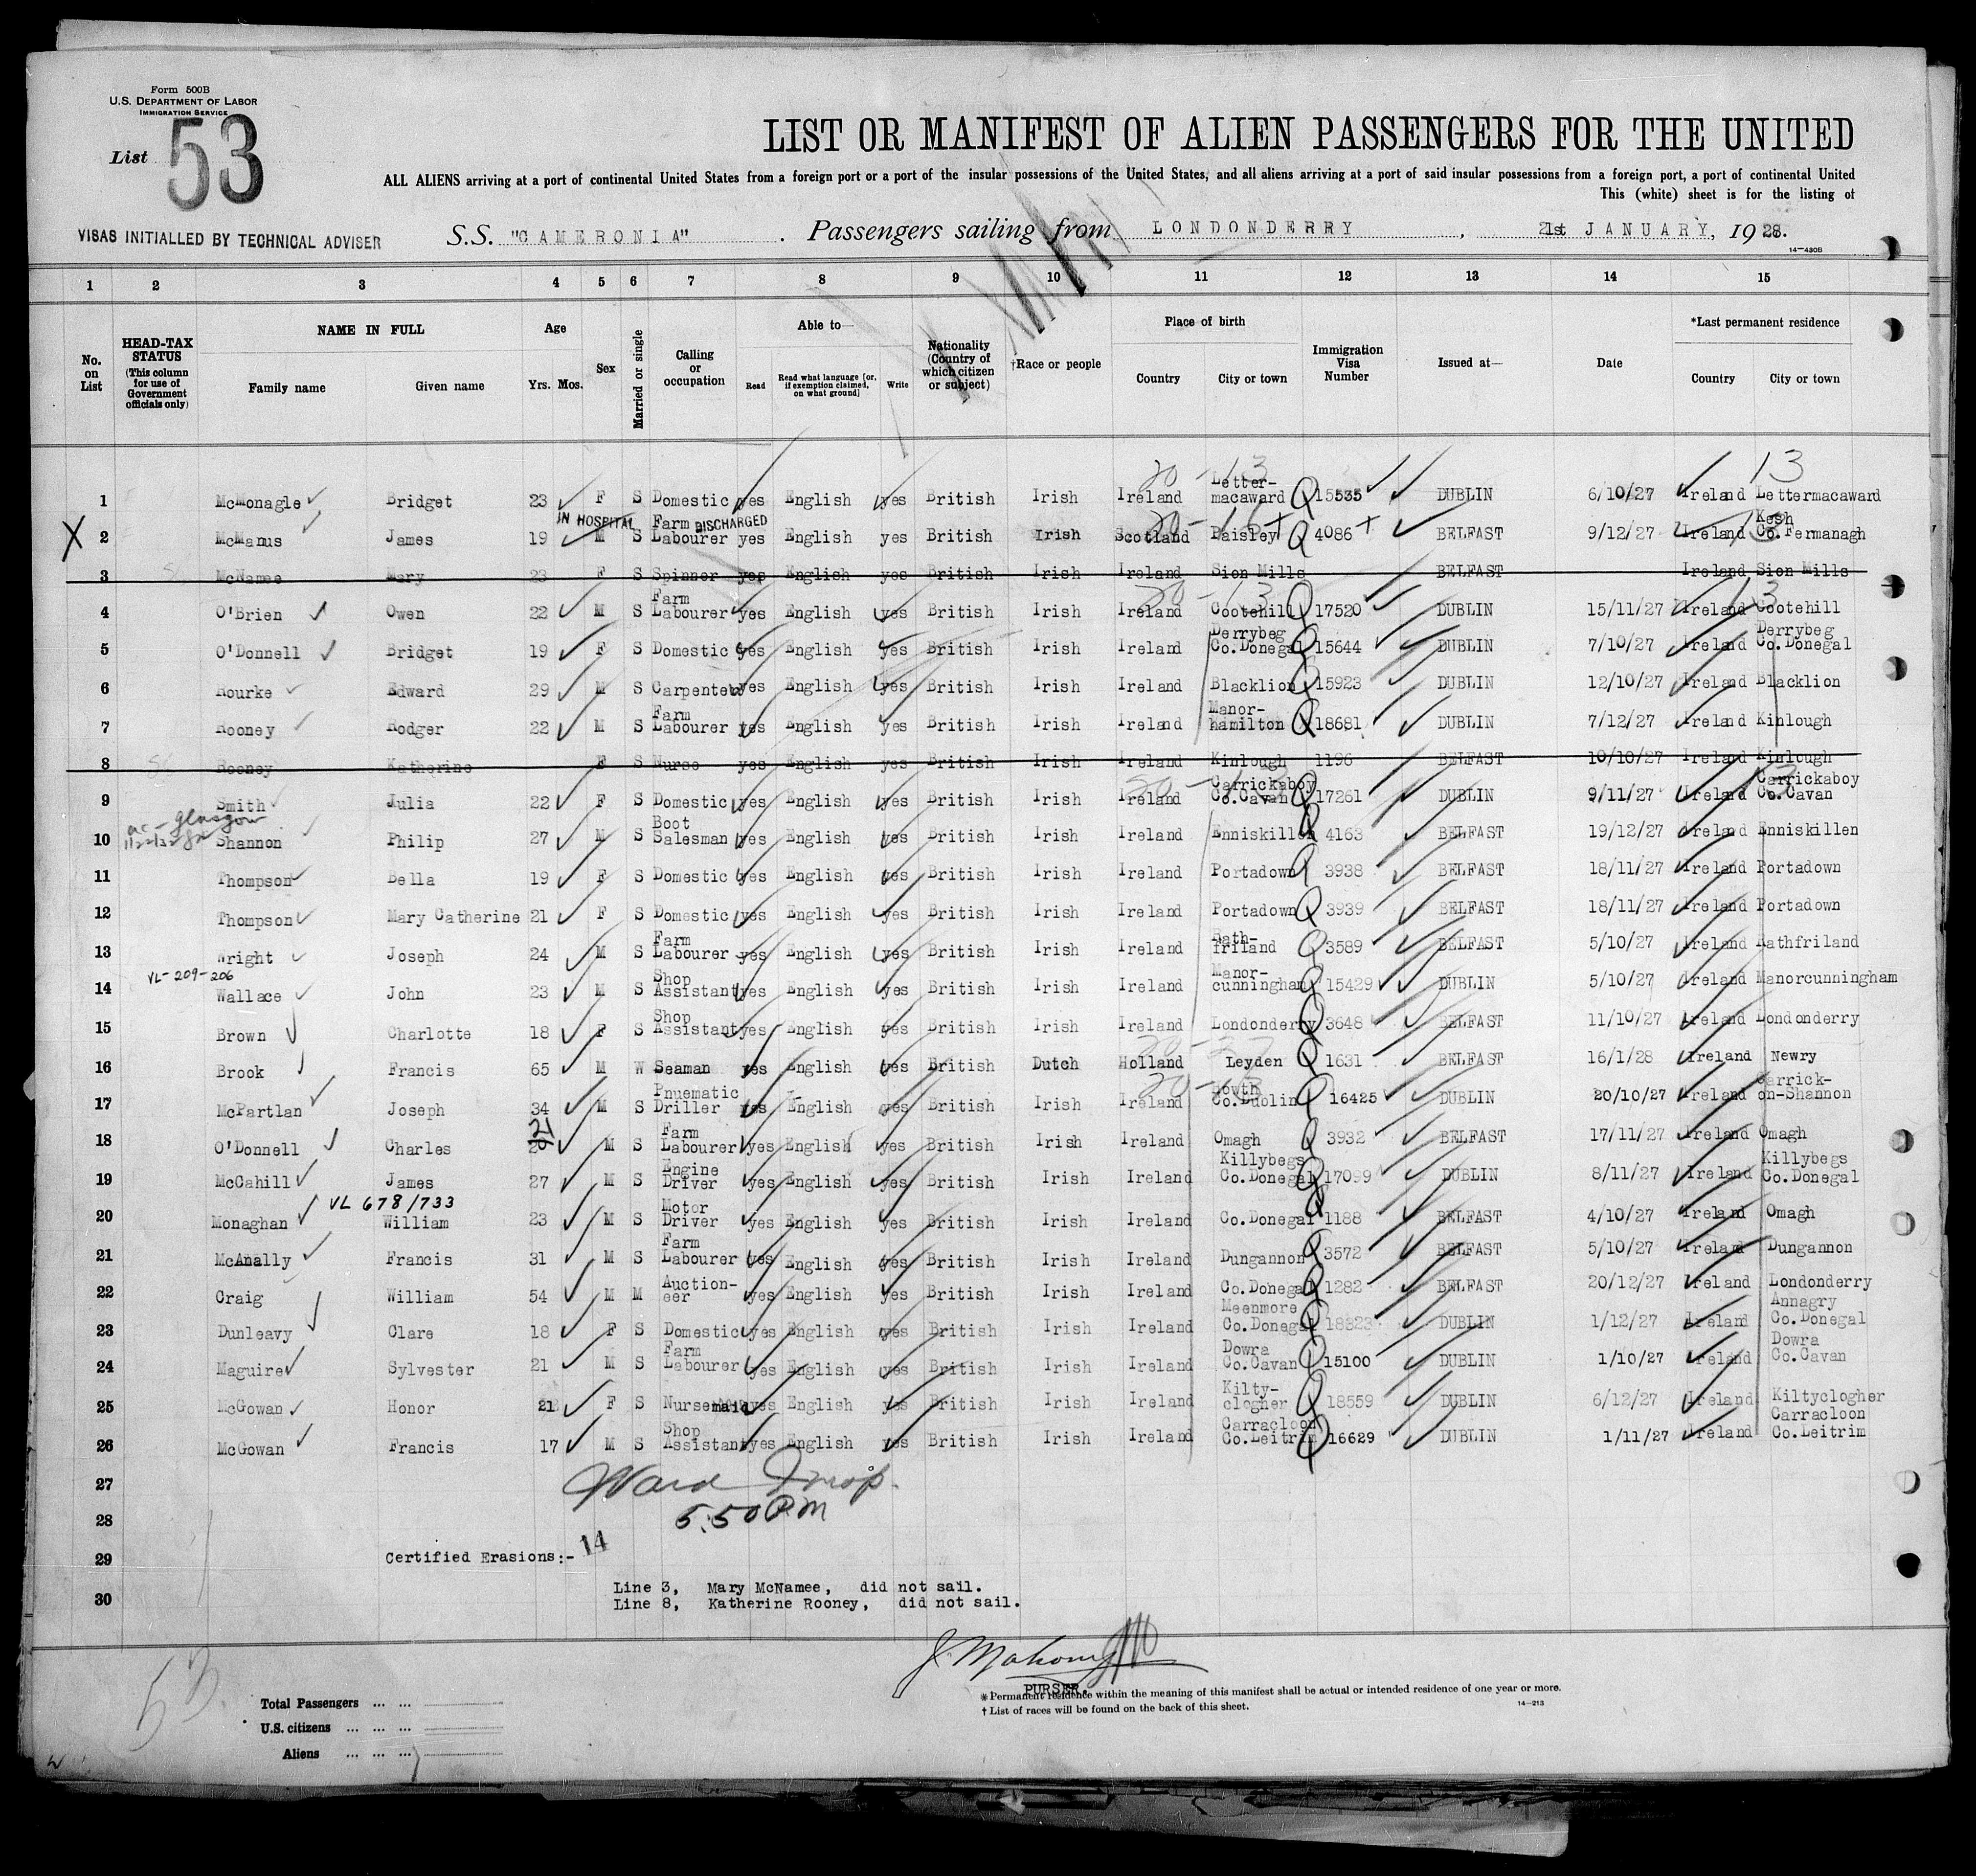 Form 500B
U.S. DEPARTMENT OF LABOR
IMMIGRATION SERVICE
List 53
LIST OR MANIFEST OF ALIEN PASSENGERS FOR THE UNITED
ALL ALIENS arriving at a port of continental United States from a foreign port or a port of the insular possessions of the United States, and all aliens arriving at a port of said insular possessions from a foreign port, a port of continental United
This (white) sheet is for the listing of
VISAS INITIALLED BY TECHNICAL ADVISER
S.S. "CAMERONIA" . Passengers sailing from LONDONDERRY , 21st JANUARY, 1928.
14-430B
1 2 3 4 5 6 7 8 9 10 11 12 13 14 15
No. on List
HEAD-TAX STATUS (This column for use of Government officials only)
NAME IN FULL
Family name Given name
Age
Yrs. Mos.
Sex
Married or single
Calling or occupation
Able to—
Read
Read what language [or, if exemption claimed, on what ground]
Write
Nationality (Country of which citizen or subject)
†Race or people
Place of birth
Country City or town
Immigration Visa Number
Issued at—
Date
*Last permanent residence
Country City or town
20-13 13
1 McMonagle Bridget 23 F S Domestic yes English yes British Irish Ireland Letter-macaward 15535 DUBLIN 6/10/27 Ireland Lettermacaward
IN HOSPITAL DISCHARGED
X 2 McManus James 19 M S Farm Labourer yes English yes British Irish Scotland Paisley 4086 BELFAST 9/12/27 Ireland Kesh Co.Fermanagh
3 McNamee Mary 23 F S Spinner yes English yes British Irish Ireland Sion Mills BELFAST Ireland Sion Mills
4 O'Brien Owen 22 M S Farm Labourer yes English yes British Irish Ireland Cootehill 17520 DUBLIN 15/11/27 Ireland Cootehill
5 O'Donnell Bridget 19 F S Domestic yes English yes British Irish Ireland Derrybeg Co.Donegal 15644 DUBLIN 7/10/27 Ireland Derrybeg Co.Donegal
6 Rourke Edward 29 M S Carpenter yes English yes British Irish Ireland Blacklion 15923 DUBLIN 12/10/27 Ireland Blacklion
7 Rooney Rodger 22 M S Farm Labourer yes English yes British Irish Ireland Manor-hamilton 18681 DUBLIN 7/12/27 Ireland Kinlough
8 Rooney Katherine F S Nurse yes English yes British Irish Ireland Kinlough 1196 BELFAST 10/10/27 Ireland Kinlough
9 Smith Julia 22 F S Domestic yes English yes British Irish Ireland Carrickaboy Co.Cavan 17261 DUBLIN 9/11/27 Ireland Carrickaboy Co.Cavan
Glasgow
10 Shannon Philip 27 M S Boot Salesman yes English yes British Irish Ireland Enniskillen 4163 BELFAST 19/12/27 Ireland Enniskillen
11 Thompson Bella 19 F S Domestic yes English yes British Irish Ireland Portadown 3938 BELFAST 18/11/27 Ireland Portadown
12 Thompson Mary Catherine 21 F S Domestic yes English yes British Irish Ireland Portadown 3939 BELFAST 18/11/27 Ireland Portadown
13 Wright Joseph 24 M S Farm Labourer yes English yes British Irish Ireland Rath-friland 3589 BELFAST 5/10/27 Ireland Rathfriland
VL-209-206
14 Wallace John 23 M S Shop Assistant yes English yes British Irish Ireland Manor-cunningham 15429 DUBLIN 5/10/27 Ireland Manorcunningham
15 Brown Charlotte 18 F S Shop Assistant yes English yes British Irish Ireland Londonderry 3648 BELFAST 11/10/27 Ireland Londonderry
16 Brook Francis 65 M W Seaman yes English yes British Dutch Holland Leyden 1631 BELFAST 16/1/28 Ireland Newry
17 McPartlan Joseph 34 M S Pnuematic Driller yes English yes British Irish Ireland Howth Co.Dublin 16425 DUBLIN 20/10/27 Ireland Carrick-on-Shannon
18 O'Donnell Charles 21 M S Farm Labourer yes English yes British Irish Ireland Omagh 3932 BELFAST 17/11/27 Ireland Omagh
19 McCahill James 27 M S Engine Driver yes English yes British Irish Ireland Killybegs Co.Donegal 17099 DUBLIN 8/11/27 Ireland Killybegs Co.Donegal
VL 678/733
20 Monaghan William 23 M S Motor Driver yes English yes British Irish Ireland Co.Donegal 1188 BELFAST 4/10/27 Ireland Omagh
21 McAnally Francis 31 M S Farm Labourer yes English yes British Irish Ireland Dungannon 3572 BELFAST 5/10/27 Ireland Dungannon
22 Craig William 54 M M Auction-eer yes English yes British Irish Ireland Co.Donegal 1282 BELFAST 20/12/27 Ireland Londonderry
23 Dunleavy Clare 18 F S Domestic yes English yes British Irish Ireland Meenmore Co.Donegal 18323 DUBLIN 1/12/27 Ireland Annagry Co.Donegal
24 Maguire Sylvester 21 M S Farm Labourer yes English yes British Irish Ireland Dowra Co.Cavan 15100 DUBLIN 1/10/27 Ireland Dowra Co.Cavan
25 McGowan Honor 21 F S Nursemaid yes English yes British Irish Ireland Kilty-clogher 18559 DUBLIN 6/12/27 Ireland Kiltyclogher
26 McGowan Francis 17 M S Shop Assistant yes English yes British Irish Ireland Carracloon Co.Leitrim 16629 DUBLIN 1/11/27 Ireland Carracloon Co.Leitrim
27 Ward
28 5.50 PM
29 Certified Erasions:- 14
30 Line 3, Mary McNamee, did not sail.
Line 8, Katherine Rooney, did not sail.
PURSER.
53
Total Passengers ... ...
U.S. citizens ... ... ...
Aliens ... ... ...
* Permanent residence within the meaning of this manifest shall be actual or intended residence of one year or more.
† List of races will be found on the back of this sheet.
14-213